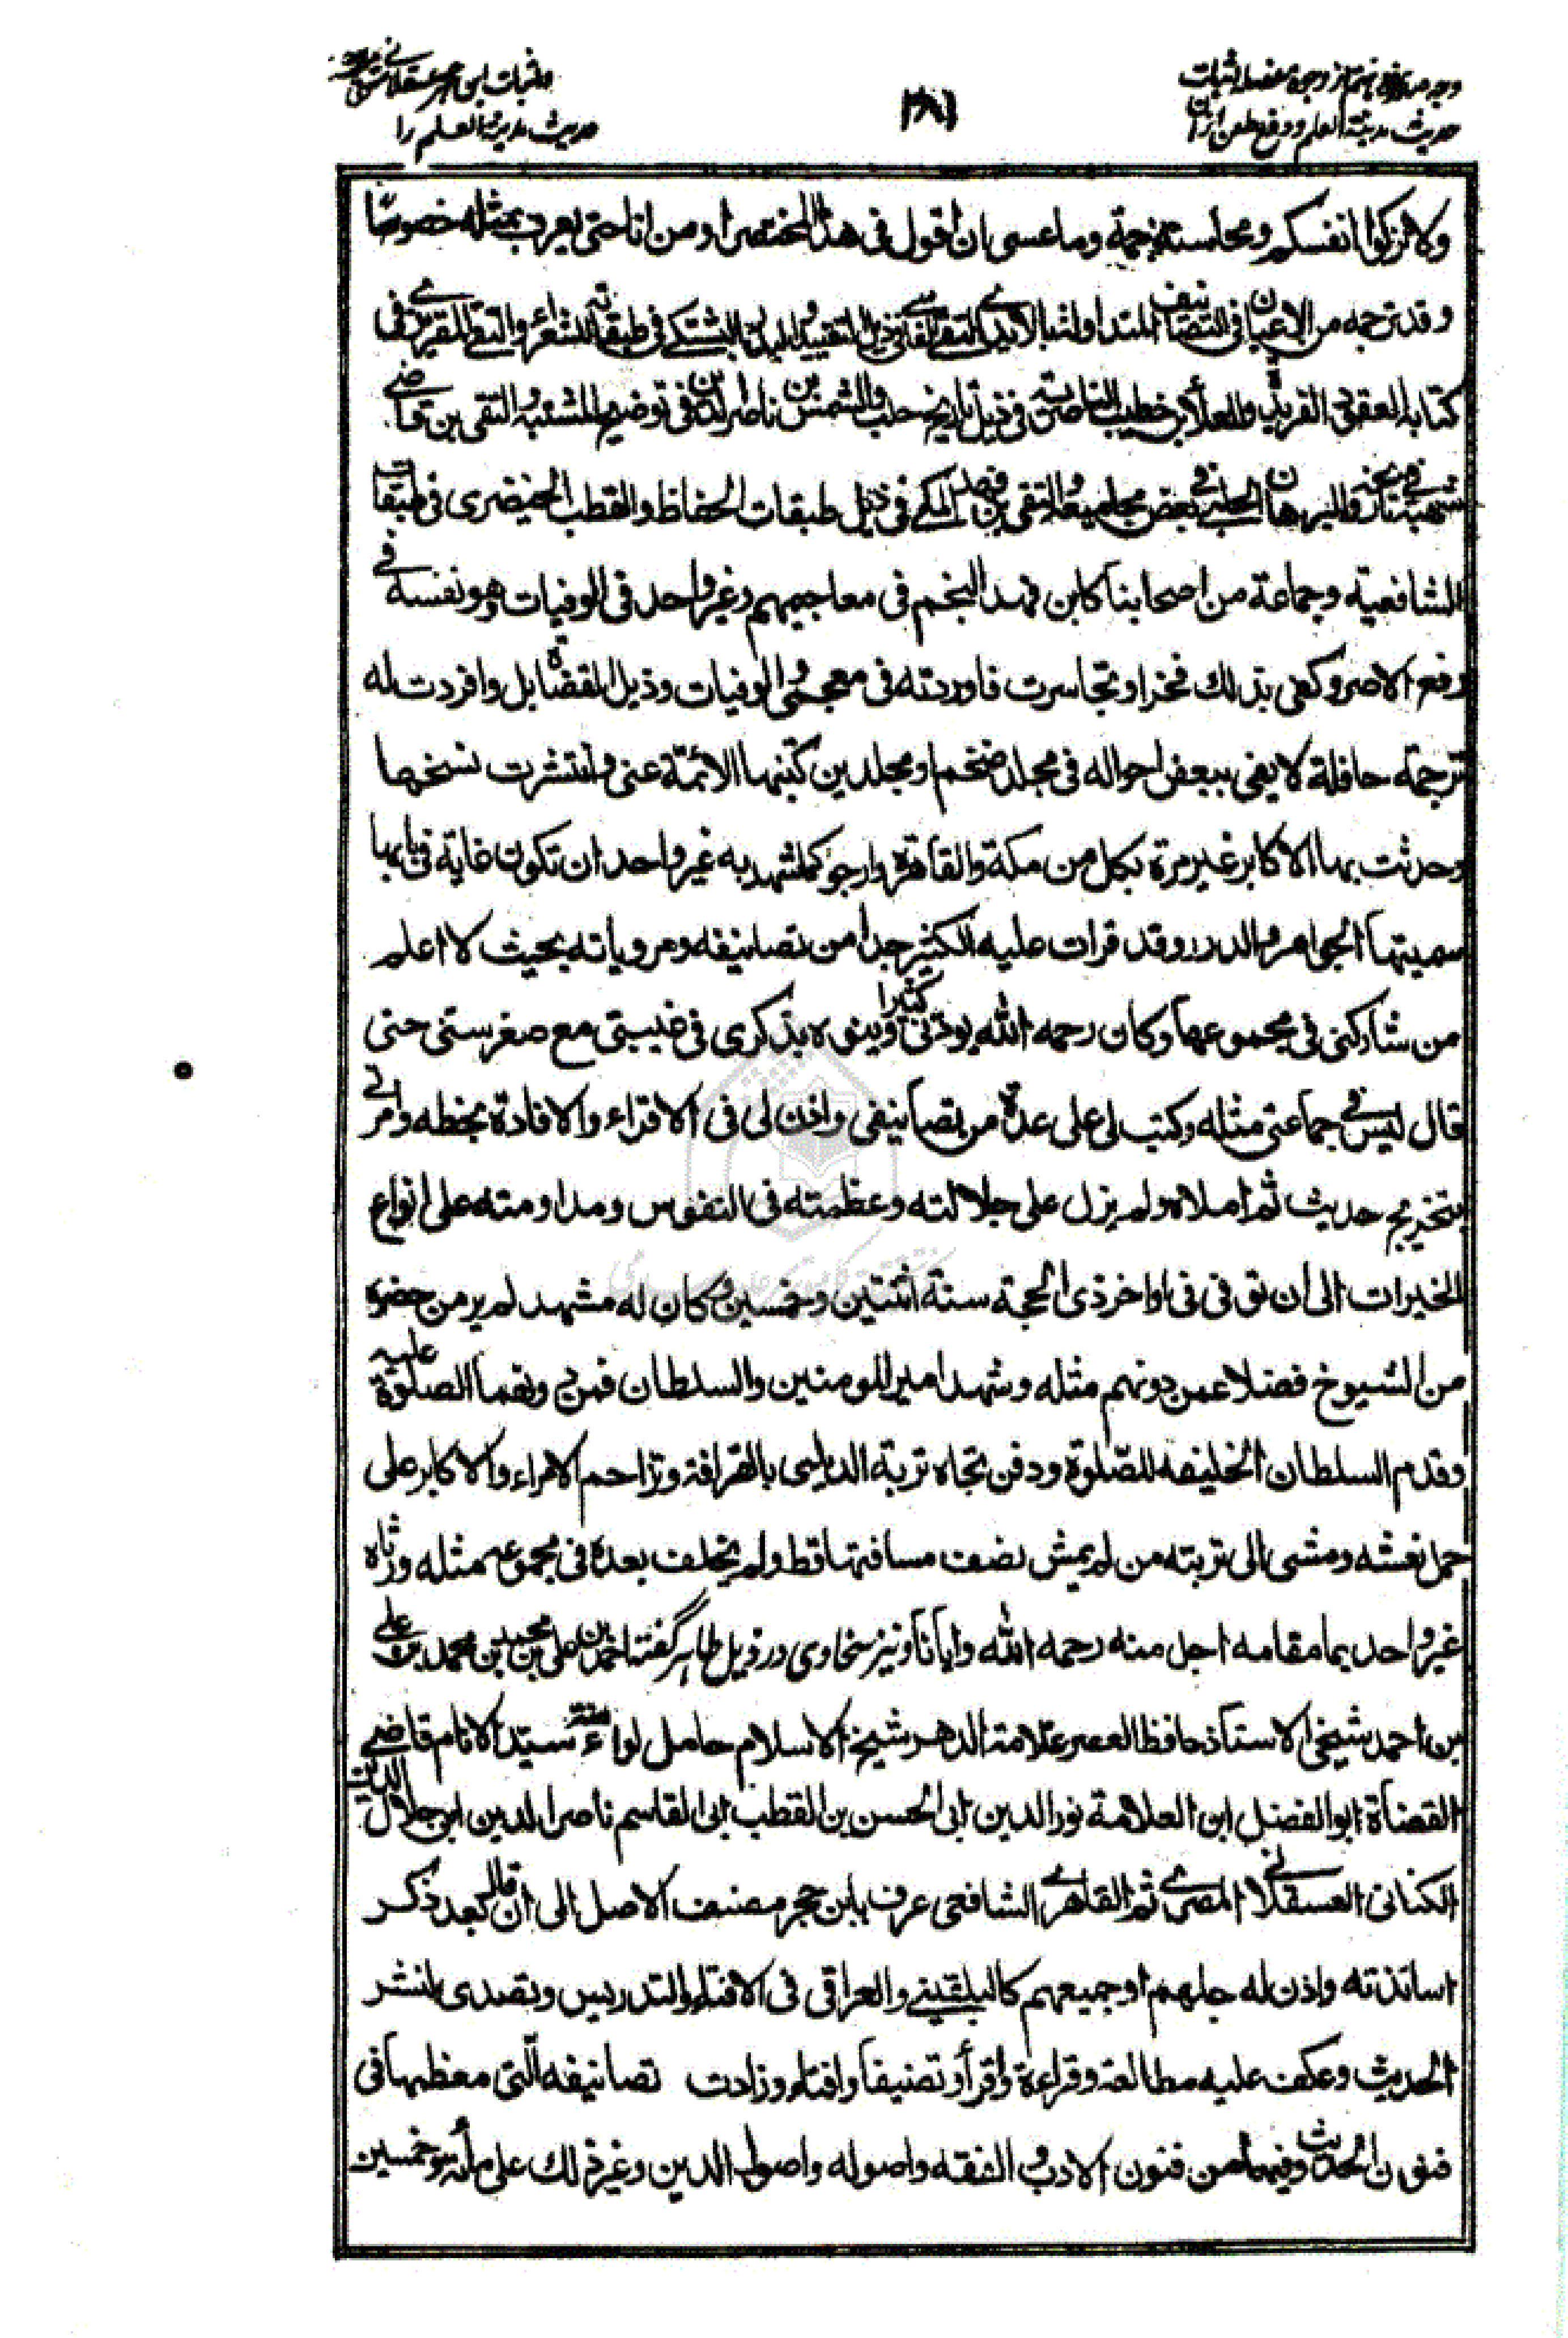 حديث مدينة العلم و دفع طعن از ان
اثبات ابن حجر عسقلانی
حديث مدينة العلم را
ولا تزكوا انفسكم ومجالسته جمة وما عسى ان اقول فى هذا المختصر او من انا حتى يعرف بمثله خصوصًا
وقد ترجمه من الاعيان فى التصانيف المتداولة بالايدى التقى الفاسى فى ذيل التقييد والبدر البشتكى فى طبقاته للشعراء والتقى المقريزى فى
كتابه العقود الفريدة والعلاء بن خطيب الناصرية فى ذيل تاريخ حلب والشمس بن ناصر الدين فى توضيح المشتبه والتقى بن قاضى
شهبة فى تاريخه والبرهان الحلبى فى بعض مجاميعه والتقى بن فهد المكى فى ذيل طبقات الحفاظ والقطب الخيضرى فى طبقات
الشافعية وجماعة من اصحابنا كابن فهد النجم فى معاجيمهم وغير واحد فى الوفيات وهو نفسه فى
رفع الاصر وكفى بذلك فخرا وتجاسرت فاوردته فى معجمى والوفيات وذيل القضاة بل وافردت له
ترجمة حافلة لا يفى ببعض احواله فى مجلد ضخم او مجلدين كتبها الائمّة عنى وانتشرت نسخها
وحدثت بها الاكابر غير مرة بكل من مكة والقاهرة وارجو كما شهد به غير واحد ان تكون غاية فى بابها
سميتها الجواهر والدرر وقد قرات عليه الكثير جدا من تصانيفه ومروياته بحيث لا اعلم
من شاركنى فى مجموعها وكان رحمه الله يودنى كثيرا وينوه بذكرى فى غيبتى مع صغر سنى حتى
قال ليس فى جماعتى مثله وكتب لى على عدة من تصانيفى واذن لى فى الاقراء والافادة بخطه وامرنى
بتخريج حديث ثم املاه ولم يزل على جلالته وعظمته فى النفوس ومداومته على انواع
الخيرات الى ان توفى فى اواخر ذى الحجة سنة اثنتين وخمسين وكان له مشهد لم ير من حضره
من الشيوخ فضلا عمن دونهم مثله وشهد امير المومنين والسلطان فمن دونهما الصلوة عليه
وقدم السلطان الخليفه للصّلوة ودفن تجاه تربة الديلمى بالقرافة وتزاحم الامراء والاكابر على
حمل نعشه ومشى الى تربته من لم يمش نصف مسافتها قط ولم يخلف بعده فى مجموعه مثله ورثاه
غير واحد بما مقامه اجل منه رحمه الله وايانا ونيز سخاوى در ذيل طاهر گفته احمد بن على بن محمد بن محمد بن على
بن احمد شيخى الاستاذ حافظ العصر علامة الدهر شيخ الاسلام حامل لواء سنة سيّد الانام قاضى
القضاة ابو الفضل ابن العلامة نور الدين ابى الحسن بن القطب ابى القاسم ناصر الدين ابن جلال الدين
الكنانى العسقلانى المصرى ثم القاهرى الشافعى عرف بابن حجر مصنف الاصل الى ان قال بعد ذكر
اساتذته واذن له جلهم او جميعهم كالبلقينى والعراقى فى الافتاء والتدريس وتصدى لنشر
الحديث وعكف عليه مطالعة وقراءة واقراء وتصنيفا وافتاء وزادت تصانيفه الّتى معظمها فى
فنون الحديث وفيها من فنون الادب والفقه واصوله واصول الدين وغير ذلك على مأة وخمسين